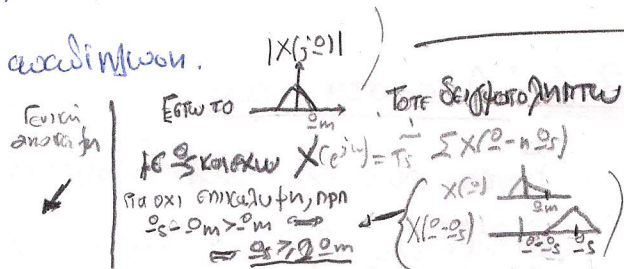 αναδίπλωση.
|X(jΩ)|
Γενική
Εστω το Ωm . Τοτε δειγματοληπτω
με Ωs και εχω X(e^jω) = 1/Ts Σ X(Ω-nΩs)
Για οχι επικαλυψη, πρπ
Ωs - Ωm > Ωm ⇔
⇔ Ωs ≥ 2Ωm
X(Ω) Ωm
X(Ω-Ωs) Ωs